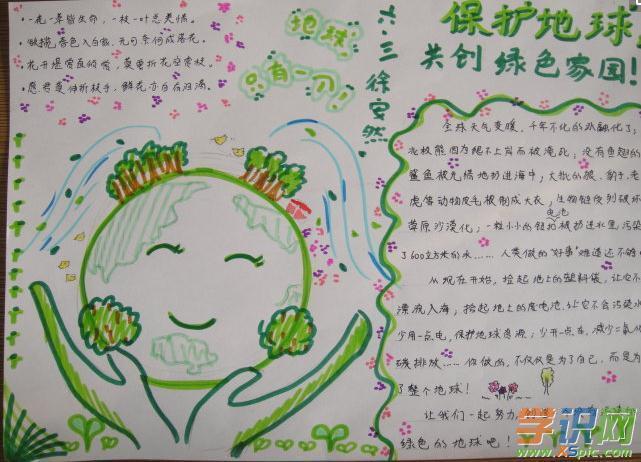 ·一花一草皆生命,一枝一叶总关情。
春色入白瓶,无可奈何成落花。
·花开堪赏直须赏,莫要折花空赏枝。
·愿君莫伸折枝手,鲜花方自在自满。
地球
只有一个!
六·三 徐安然
保护地球
共创绿色家园!
全球天气变暖,千年不化的冰融化了
北极熊因为绝不上岸而被淹死;没有鱼翅的
鲨鱼被无情地扔进海中;大批的狼、豹子、老
虎等动物皮毛被制成大衣;生物链受到破坏
草原沙漠化;一粒小小的钮扣电池被扔进水里,污染
了600立方米的水……人类做的"好事"难道还不够
从现在开始,捡起地上的塑料袋,让它不
漂流入海;拾起地上的废电池,让它不会污染水
少用一点电,保护地球资源;少开一点车,减少二氧化
碳排放……你做的,不仅仅是为了自己,而是为
了整个地球!
让我们一起努力,创造
绿色的地球吧!
学识网
www.XSpic.com